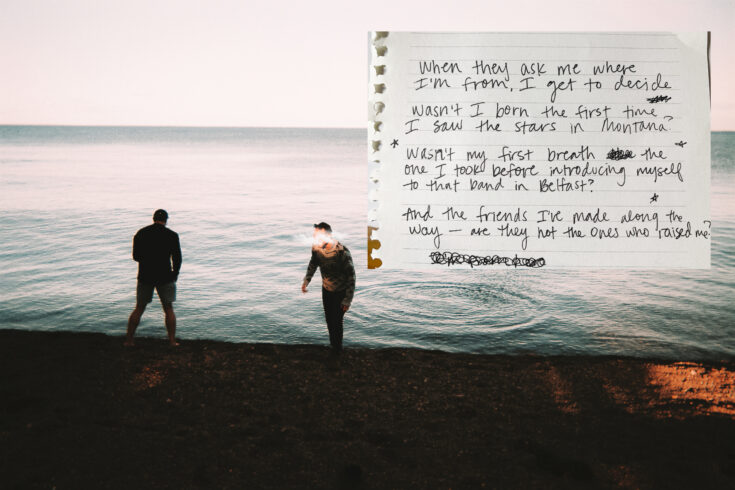 When they ask me where
I'm from, I get to decide
Wasn't I born the first time
I saw the stars in Montana?
Wasn't my first breath the
one I took before introducing myself
to that band in Belfast?
And the friends I've made along the
way — are they not the ones who raised me?